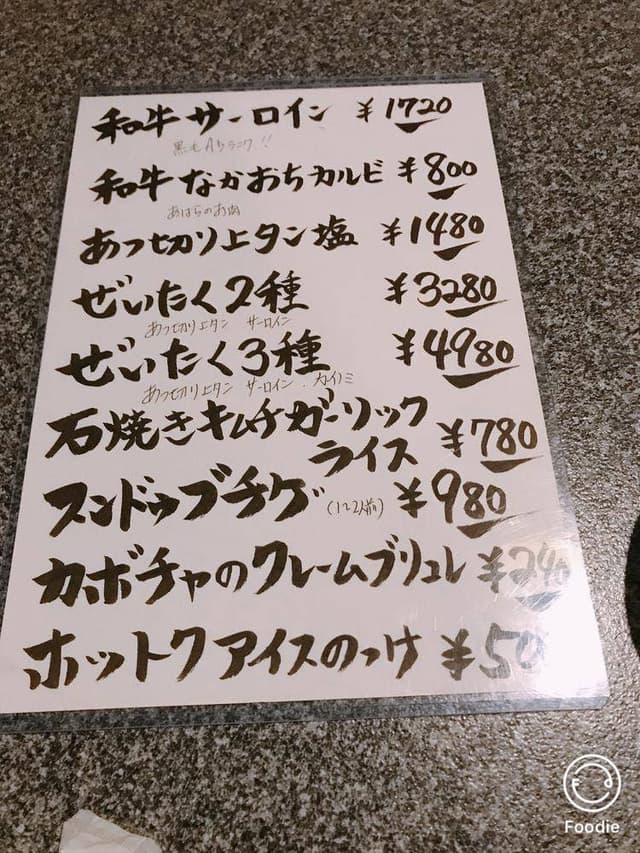 和牛サーロイン ¥1720
黒毛A5ランク!!
和牛なかおちカルビ ¥800
あばらのお肉
あつ切り上タン塩 ¥1480
ぜいたく2種 ¥3280
あつ切り上タン サーロイン
ぜいたく3種 ¥4980
あつ切り上タン サーロイン カイノミ
石焼きキムチガーリック
ライス ¥780
スンドゥブチゲ (1~2人前) ¥980
カボチャのクレームブリュレ ¥240
ホットク アイスのっけ ¥50
Foodie